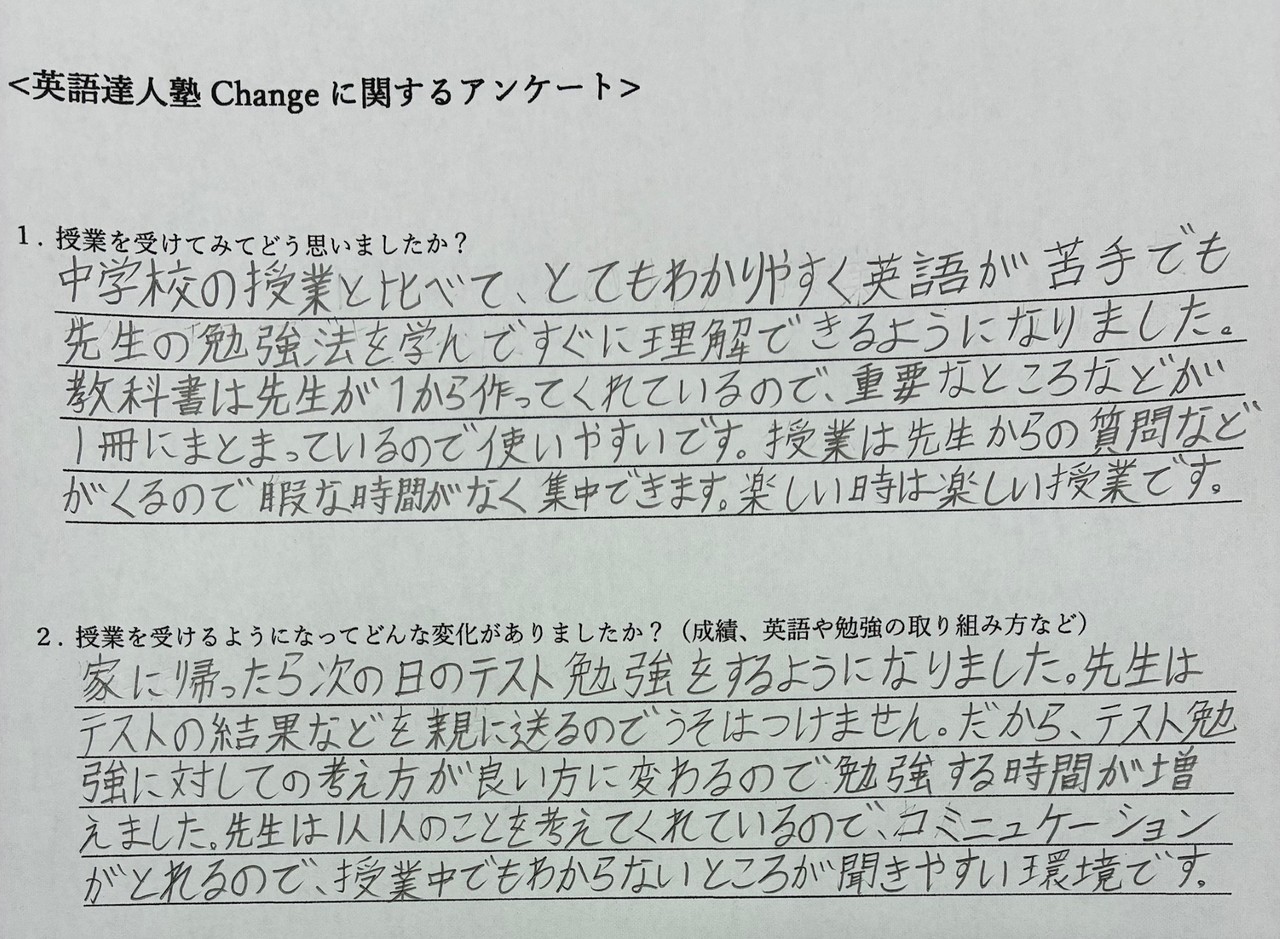 <英語達人塾 Change に関するアンケート>
1. 授業を受けてみてどう思いましたか？
中学校の授業と比べて、とてもわかりやすく英語が苦手でも
先生の勉強法を学んですぐに理解できるようになりました。
教科書は先生が1から作ってくれているので、重要なところなどが
1冊にまとまっているので使いやすいです。授業は先生からの質問など
がくるので暇な時間がなく集中できます。楽しい時は楽しい授業です。
2. 授業を受けるようになってどんな変化がありましたか？（成績、英語や勉強の取り組み方など）
家に帰ったら次の日のテスト勉強をするようになりました。先生は
テストの結果などを親に送るのでうそはつけません。だから、テスト勉
強に対しての考え方が良い方に変わるので勉強する時間が増
えました。先生は1人1人のことを考えてくれているので、コミニュケーション
がとれるので、授業中でもわからないところが聞きやすい環境です。